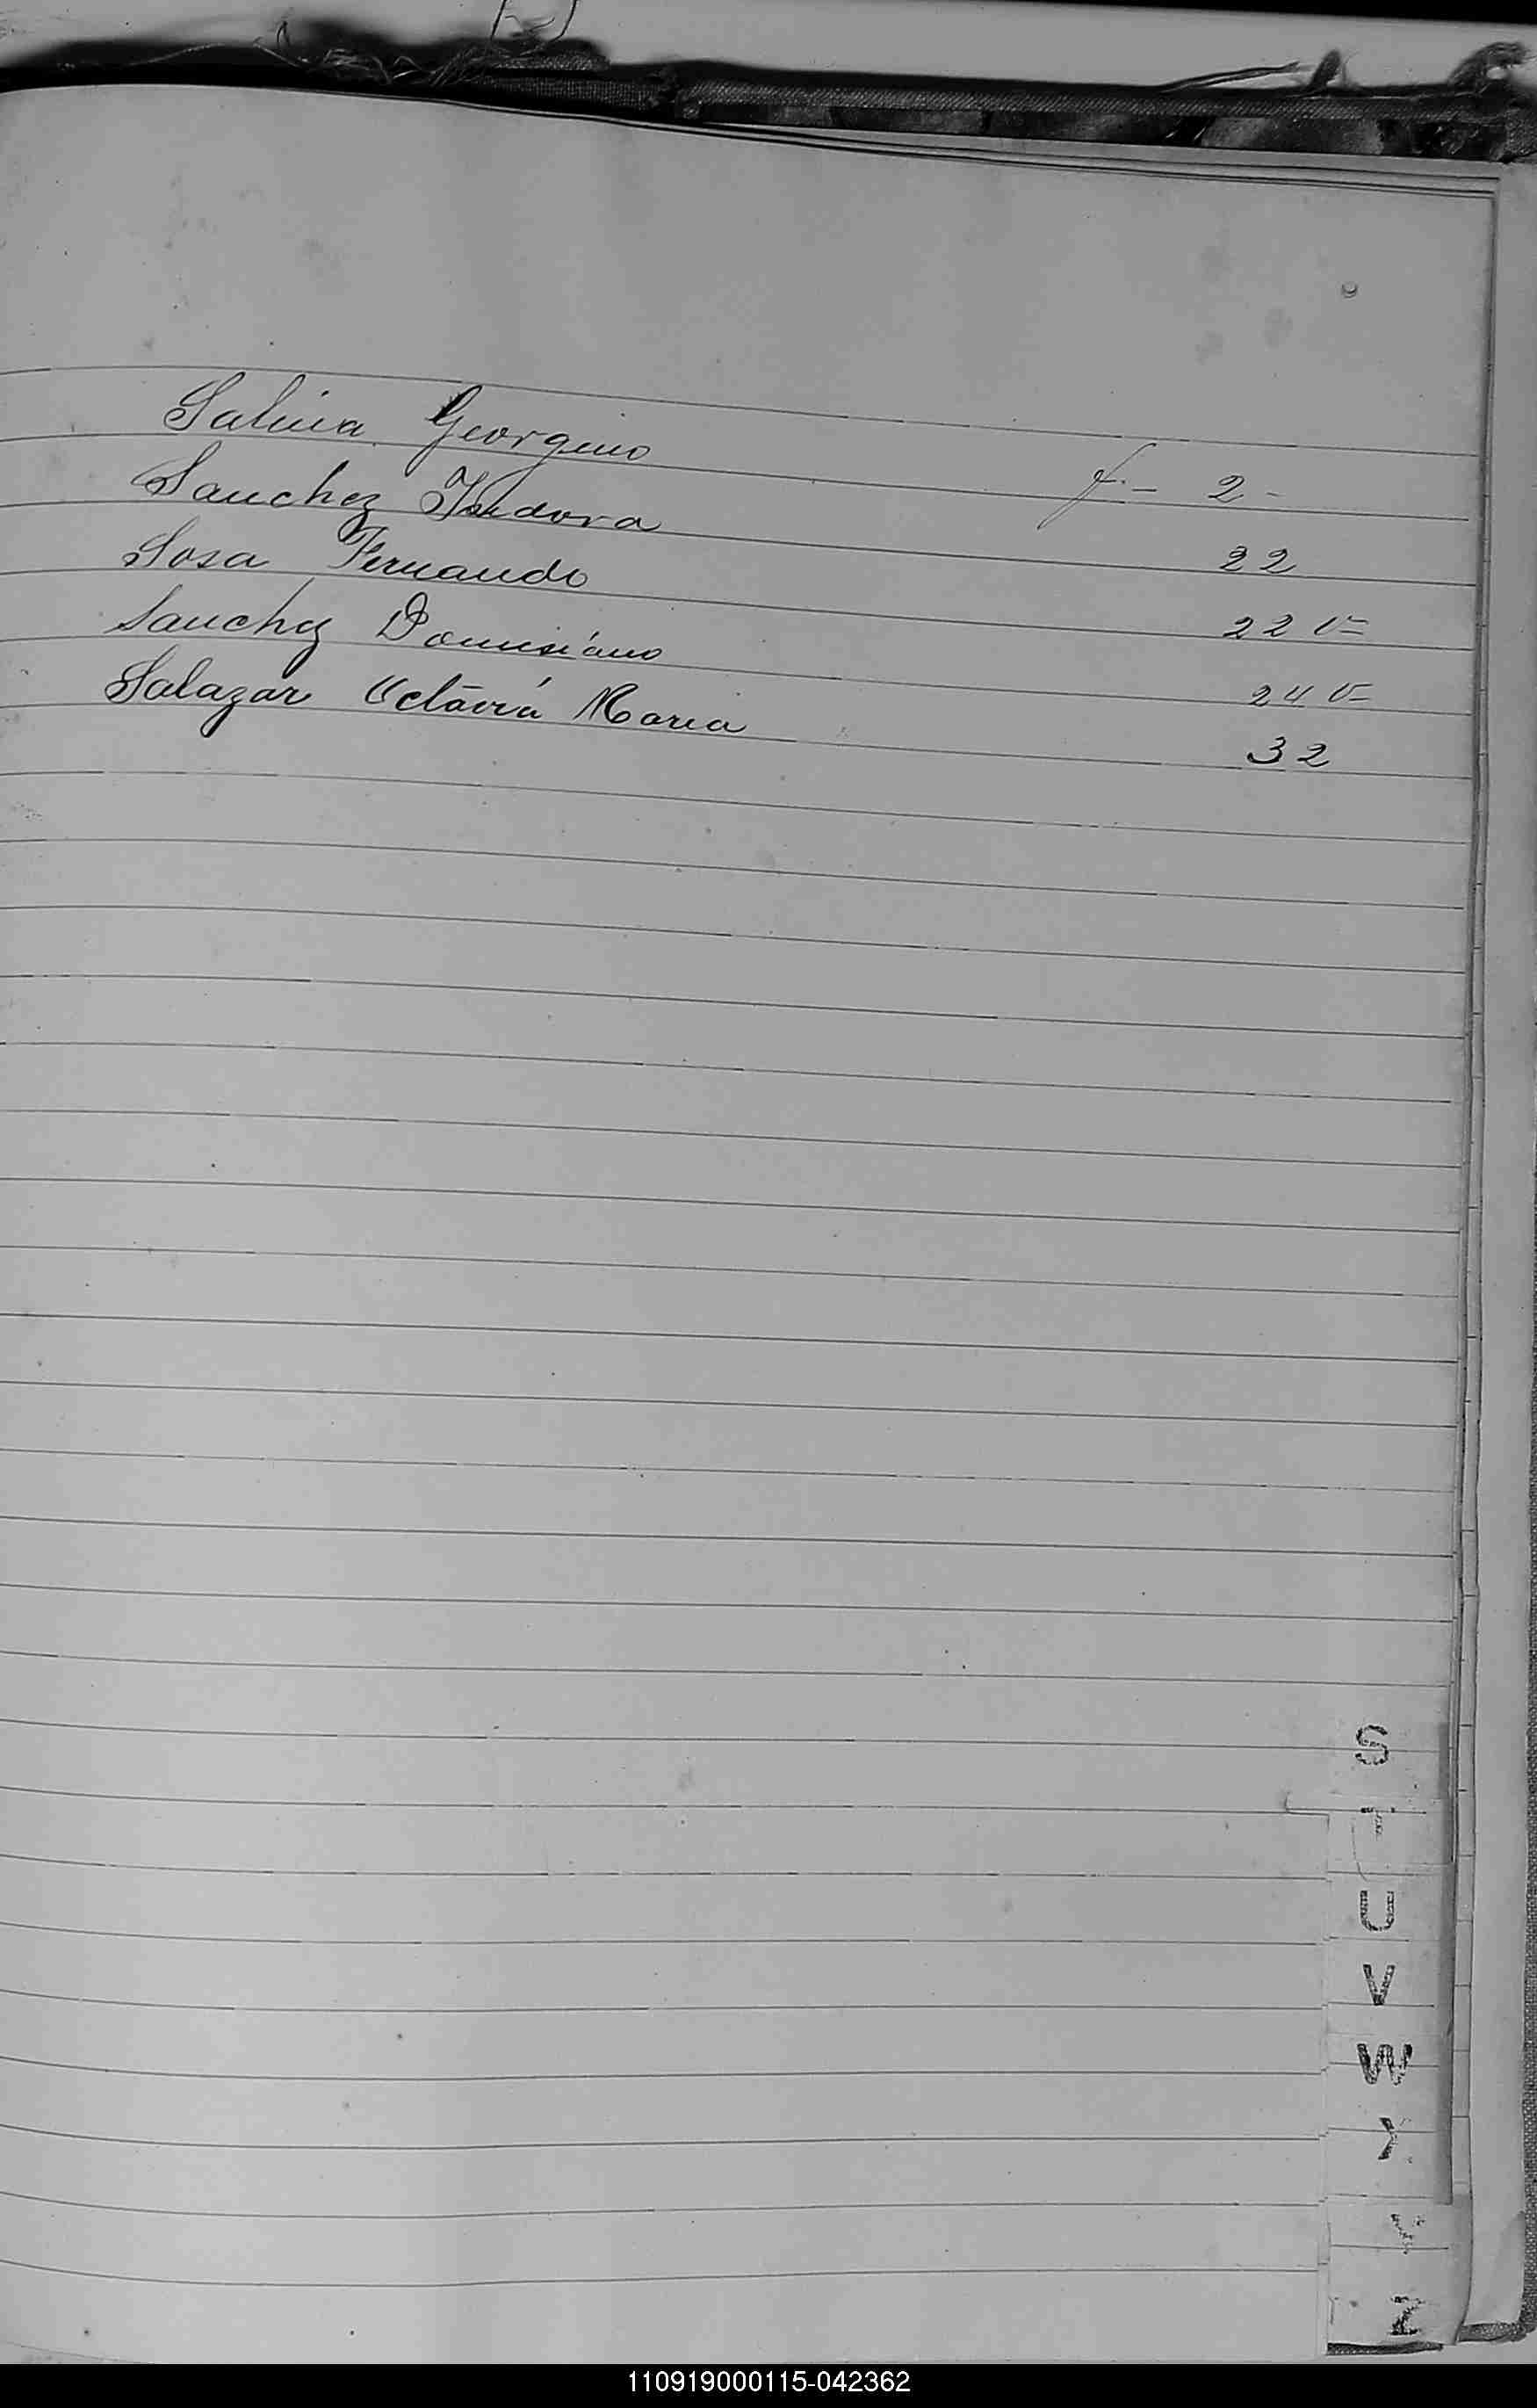 Salina Georgino f- 2-
Sanchez Isidora 22
Sosa Fernando 22 v=
Sanchez Domisiano 24 v=
Salazar Octavia Maria 32
S
T
U
V
W
X
Y
Z
110919000115-042362